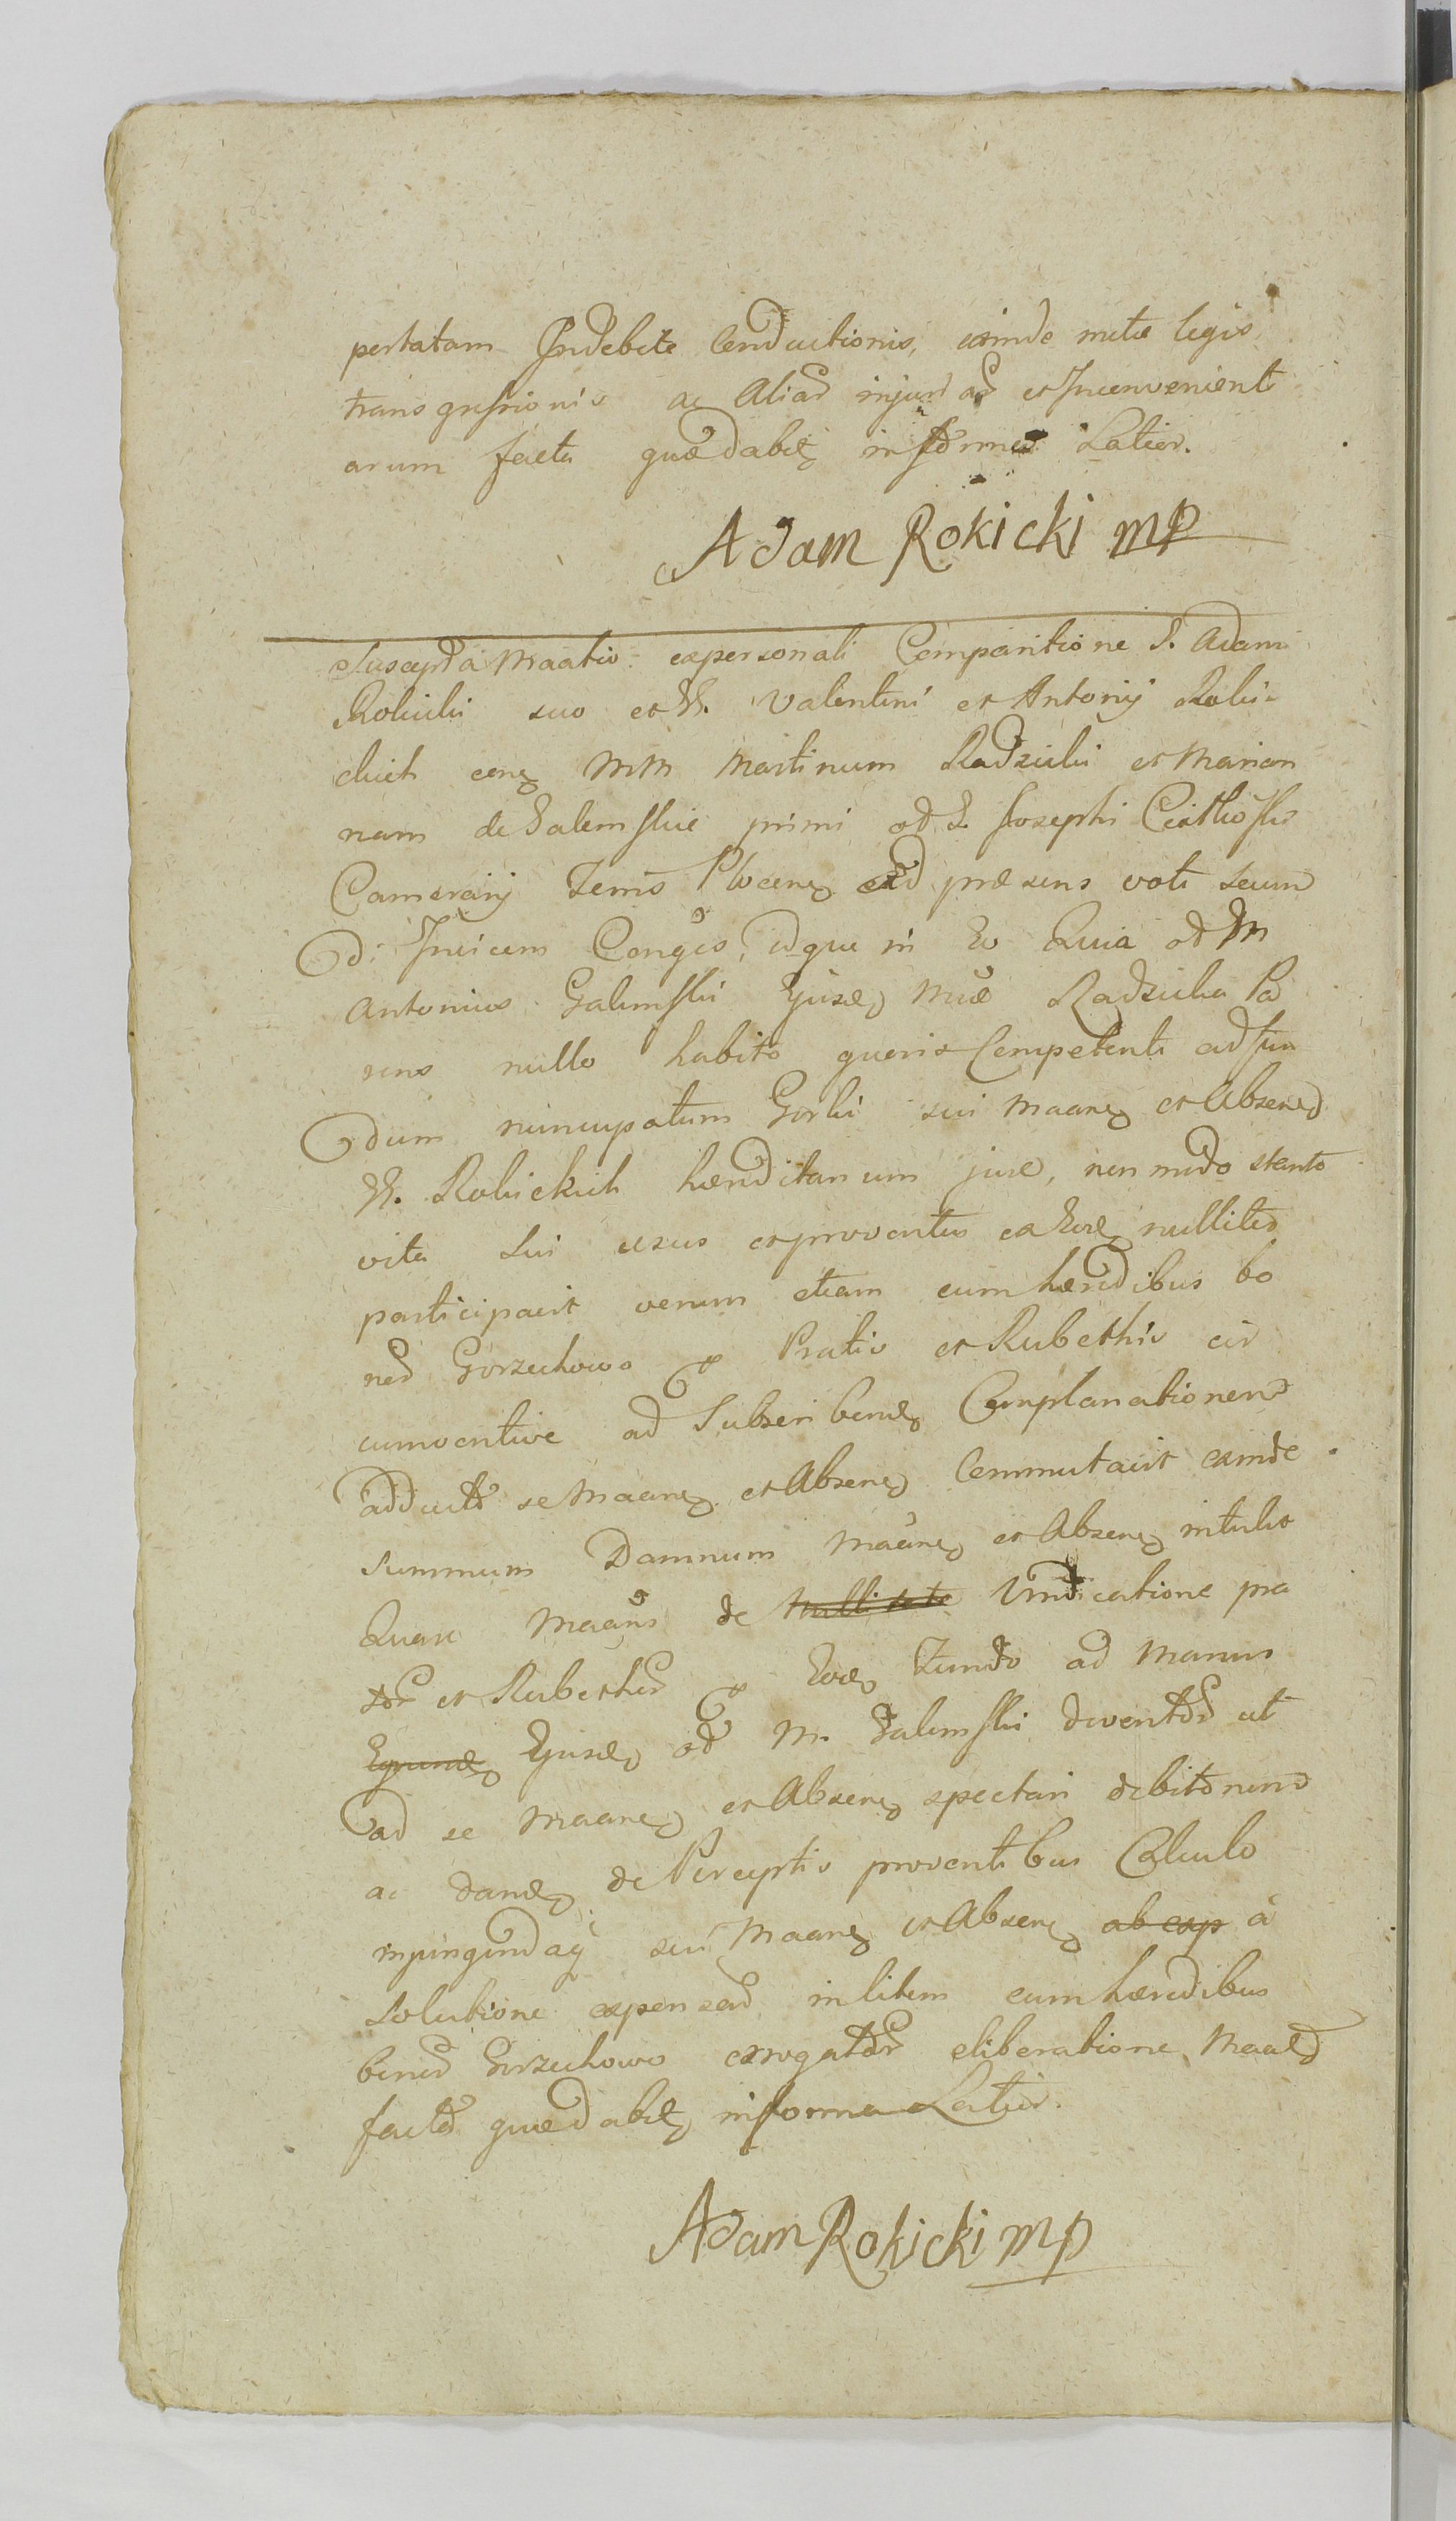 pertatam Indebite Conductionis, exinde metæ legis
transgressionis ac Aliar injur ar et Inconvenient
arum facta quædabilq in forma Latior.
Adam Rokicki mp
Suscepta Maatio expersonali Comparitione S. Adami
Rokicki suo et N. Valentini et Antonij Roki
ckich conq MM Martinum Radzicki et Marian
nam de Galemskie primi od S. Josephi
Camerarij Terris Plocenq ad præsens voti secun
di Invicem Conges, idque in Eo Quia od M
Antonius Galemski Ejusdq Muæ Radzicka Pa
rens nullo habito quovis Competenti ad fun
dum nuncupatum Gorki sui Maanq et Absenq
N. Rokickich hæreditarium jure, non modo stante
vita sui usus et proventus ex Eodq nulliter
participavit verum etiam cum hæredibus bo
nor Gorzechowo Pratis et Rubethis cir
cumventive ad Subscribendq Complanationem
adducto se Maanq et Absenq Commutavit exinde
summum Damnum Maanq et Absenq intulit
Quare Maans de Nullitate Vindicatione pra
tor et Rubethor Eodq Fundo ad Manus
Ejusdq Ejusdq od M. Galemski deventor ut
ad se Maanq et Absenq spectari debitorum
ac dandq de Perceptis proventibus Calculo
inpingendaq sui Maanq et Absenq ab exp à
solutione expensar in litem cum hæredibus
bonor Gorzechowo errogator eliberatione Maalq
facto quædabilq in forma Latior.
Adam Rokicki mp